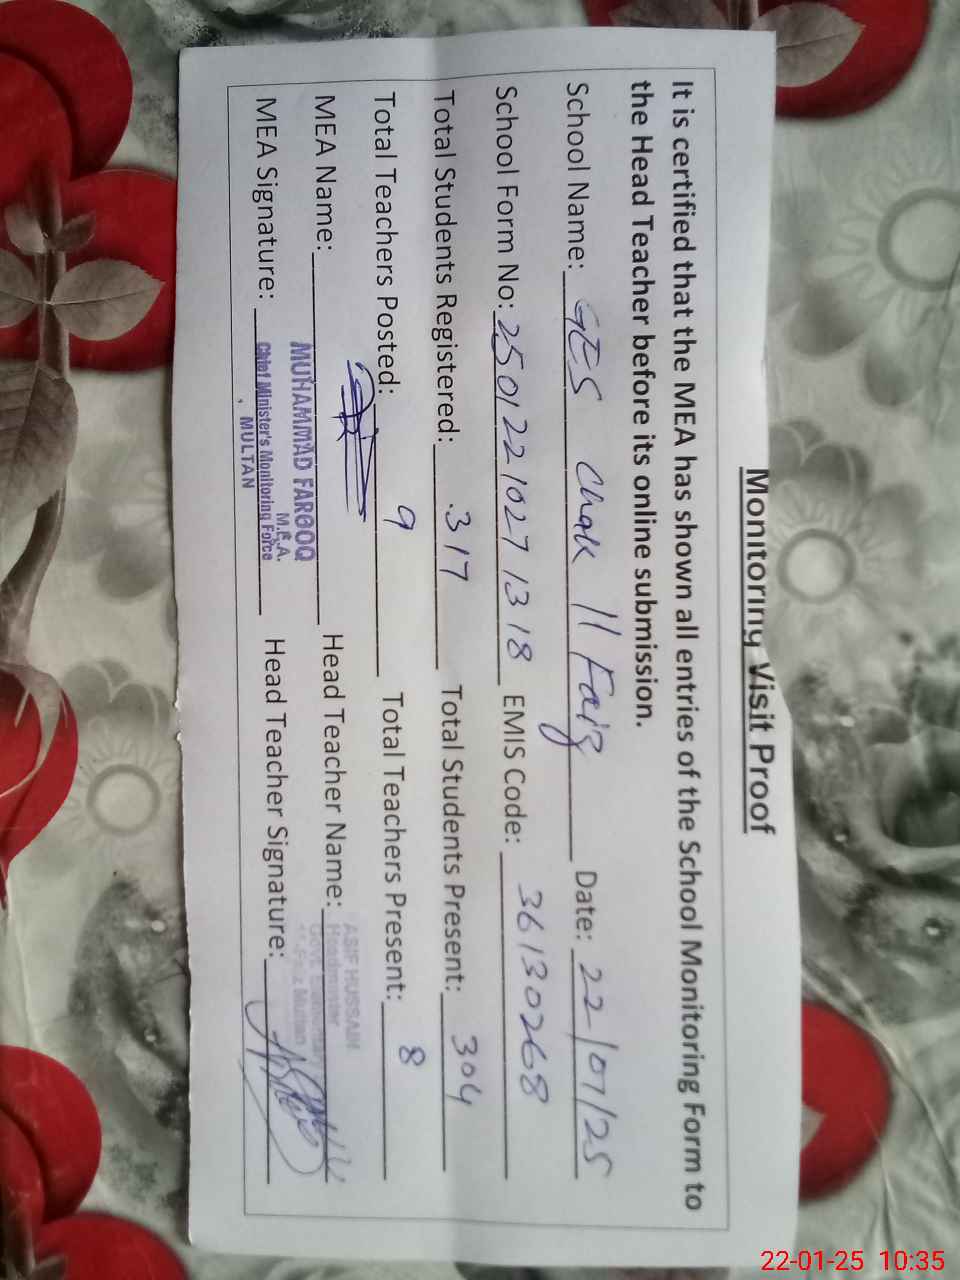 Monitoring Visit Proof
It is certified that the MEA has shown all entries of the School Monitoring Form to
the Head Teacher before its online submission.
School Name: GES Chak 11 Faiz Date: 22/01/25
School Form No: 25012210271318 EMIS Code: 36130268
Total Students Registered: 317 Total Students Present: 304
Total Teachers Posted: 9 Total Teachers Present: 8
MEA Name: Head Teacher Name:
MUHAMMAD FAROOQ
M.E.A.
ASIF HUSSAIN
Headmaster
Govt. Elementary
11-Faiz Multan
MEA Signature: Head Teacher Signature:
Chief Minister's Monitoring Force
, MULTAN
22-01-25 10:35